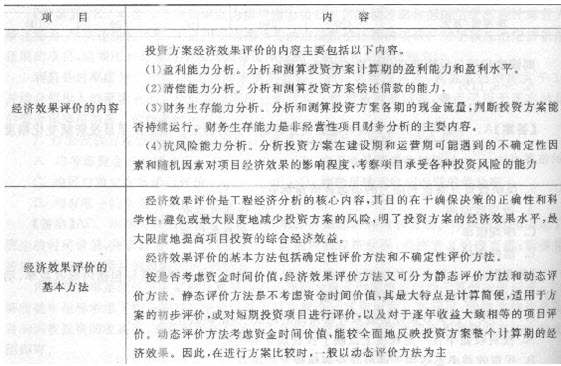 项 目 内 容
投资方案经济效果评价的内容主要包括以下内容。
(1)盈利能力分析。分析和测算投资方案计算期的盈利能力和盈利水平。
(2)清偿能力分析。分析和测算投资方案偿还借款的能力.
经济效果评价的内容
(3)财务生存能力分析。分析和测算投资方案各期的现金流量,判断投资方案能
否持续运行。财务生存能力是非经营性项目财务分析的主要内容。
(4)抗风险能力分析。分析投资方案在建设期和运营期可能遇到的不确定性因
素和随机因素对项目经济效果的影响程度,考察项目承受各种投资风险的能力
经济效果评价是工程经济分析的核心内容,其目的在于确保决策的正确性和科
学性,避免或最大限度地减少投资方案的风险,明了投资方案的经济效果水平,最
大限度地提高项目投资的综合经济效益。
经济效果评价的
基本方法
经济效果评价的基本方法包括确定性评价方法和不确定性评价方法。
按是否考虑资金时间价值,经济效果评价方法又可分为静态评价方法和动态评
价方法。静态评价方法是不考虑资金时间价值,其最大特点是计算简便,适用于方
案的初步评价,或对短期投资项目进行评价,以及对于逐年收益大致相等的项目评
价。动态评价方法考虑资金时间价值,能较全面地反映投资方案整个计算期的经
济效果。因此,在进行方案比较时,一般以动态评价方法为主